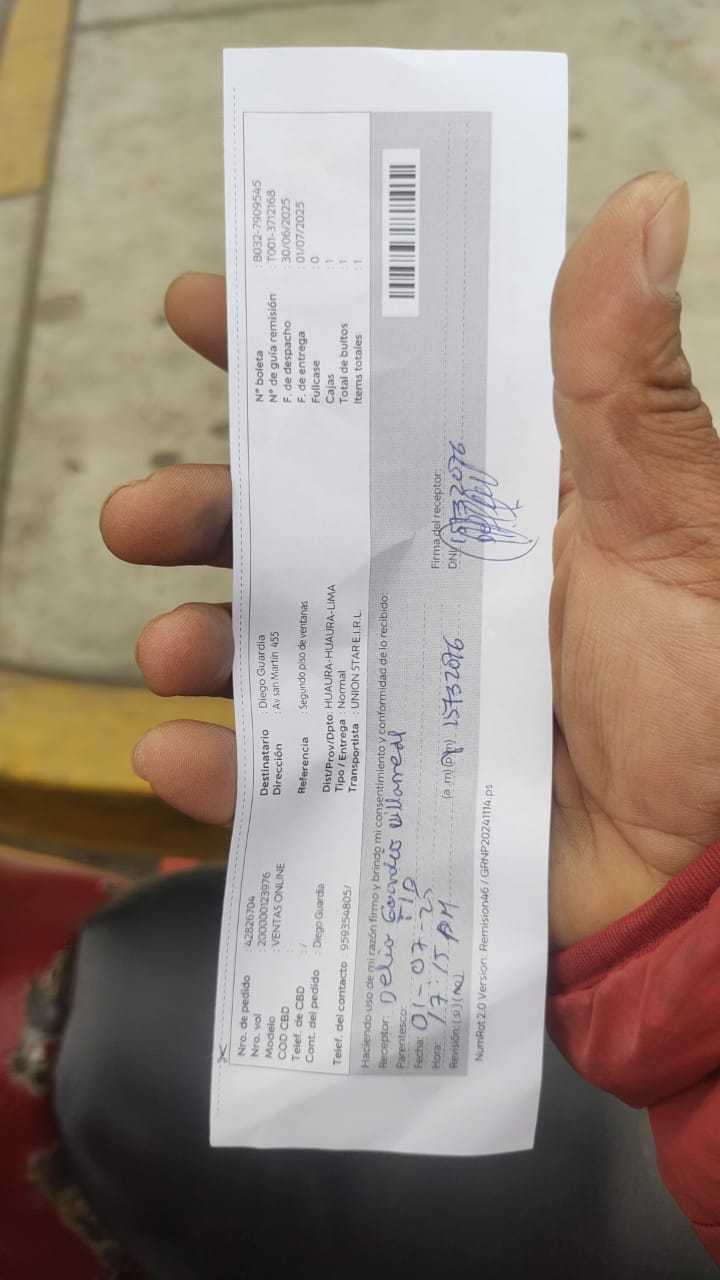 Nro. de pedido : 42826704
Nro. vol : 200000123976
Modelo : VENTAS ONLINE
COD CBD :
Telef. de CBD : /
Cont. del pedido : Diego Guardia
Telef. del contacto 959354805/
Destinatario : Diego Guardia
Dirección : Av san Martin 455
Referencia : Segundo piso de ventanas
Dist/Prov/Dpto: HUAURA-HUAURA-LIMA
Tipo / Entrega : Normal
Transportista : UNION STAR E.I.R.L.
N° boleta : B032-7909545
N° de guía remisión : T001-3712168
F. de despacho : 30/06/2025
F. de entrega : 01/07/2025
Fullcase : 0
Cajas : 1
Total de bultos : 1
Items totales : 1
Haciendo uso de mi razón firmo y brindo mi consentimiento y conformidad de lo recibido:
Receptor: Delia Villarreal
Parentesco:
Fecha: 01-07-25
Hora: 17:15 PM (a.m)(p.m) 15732076
Revisión: (si)(no)
Firma del receptor:
DNI: 15732076
NumRot 2.0 Version: Remision46 / GRNP20241114.ps